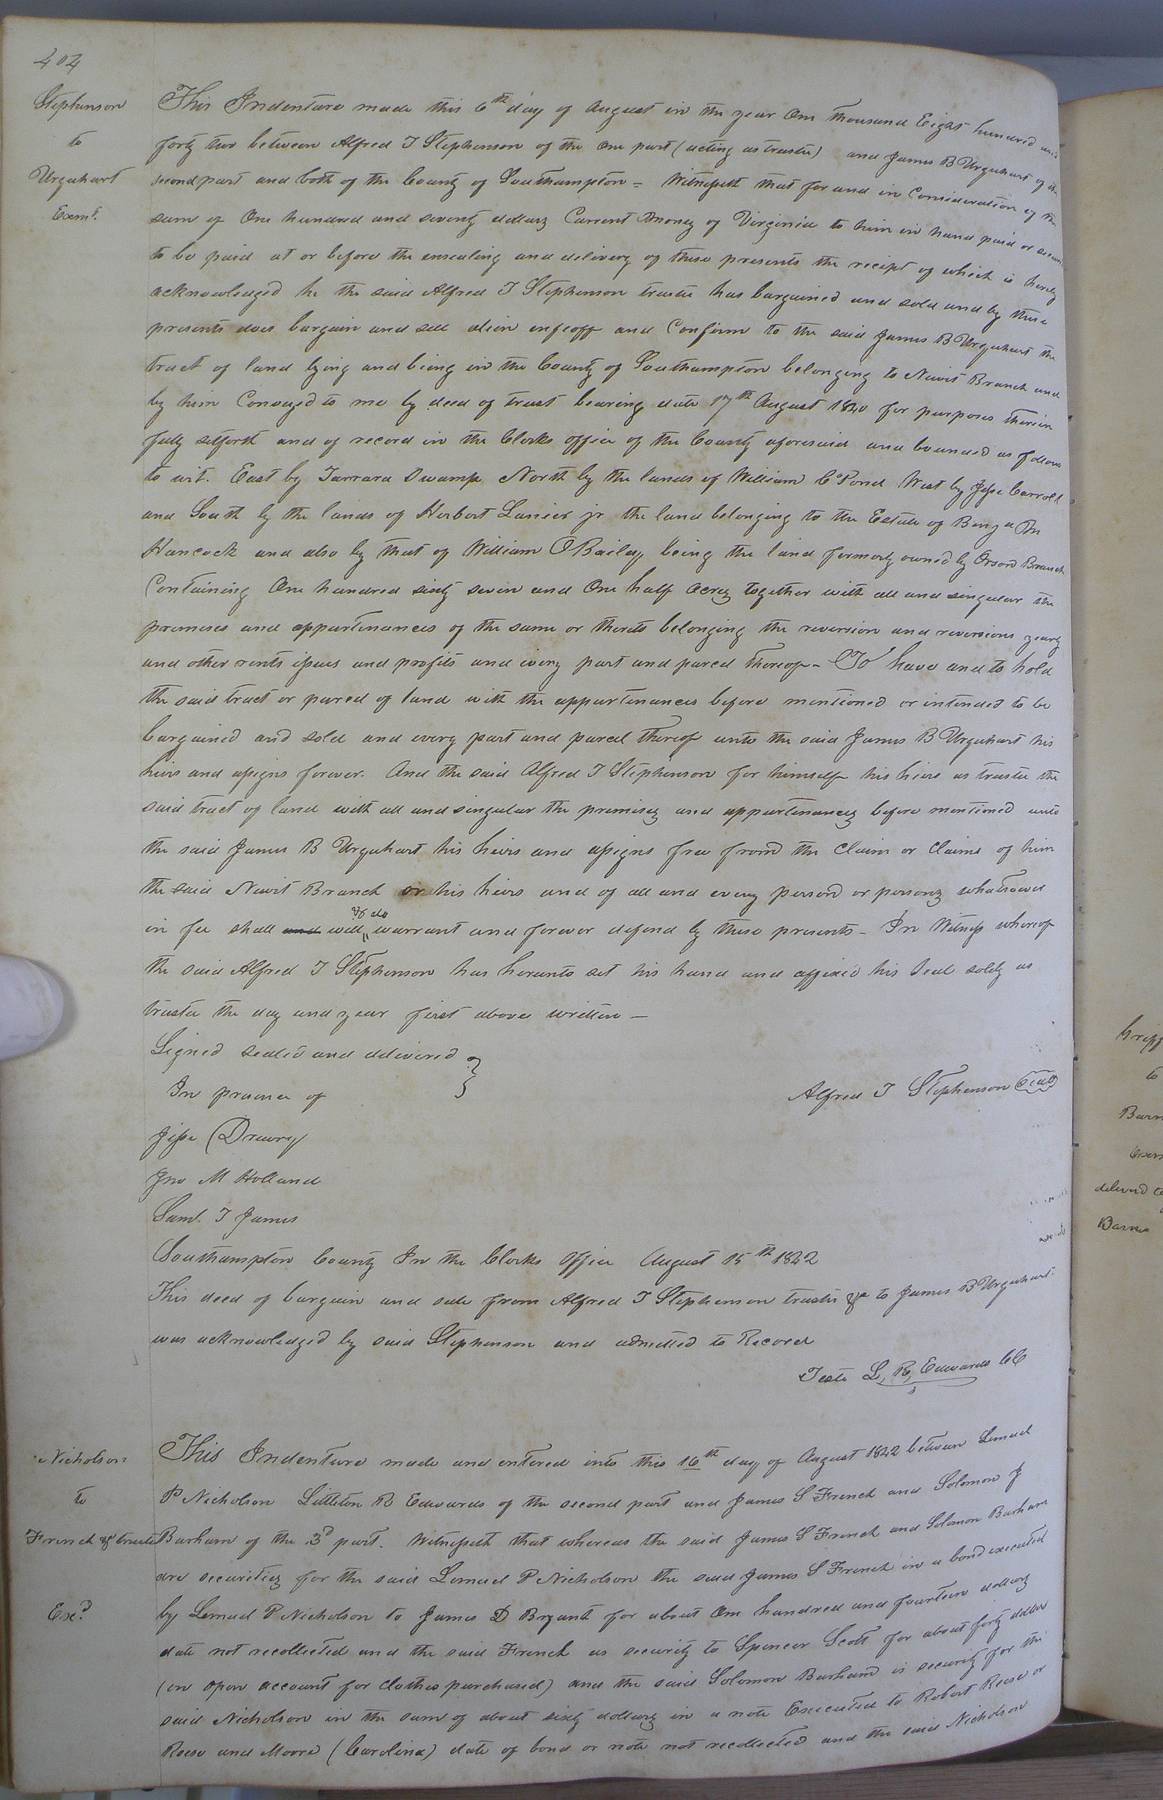 404
Stephenson
to
Urquhart
Exam.d
This Indenture made this 6th day of August in the year One thousand Eight hundred and
forty two between Alfred T Stephenson of the One part (acting as trustee) and James B Urquhart of the
second part and both of the County of Southampton = Witnesseth that for and in Consideration of the
sum of One hundred and seventy dollars Current Money of Virginia to him in hand paid or secured
to be paid at or before the ensealing and delivery of these presents the recipt of which is hereby
acknowledged he the said Alfred T Stephenson trustee has bargained and sold and by these
presents does bargain and sell alien enfeoff and Confirm to the said James B Urquhart the
tract of land lying and being in the County of Southampton belonging to Newit Branch and
by him Conveyed to me by deed of trust bearing date 17th August 1840 for purposes therein
fully setforth and of record in the Clerks office of the County aforesaid and bounded as follows
to wit. East by Tarrara Swamp North by the lands of William C Pond West by Jesse Carroll
and South by the lands of Herbert Lanier jr the land belonging to the Estate of Benj.a M
Hancock and also by that of William O Bailey being the land formerly owned by Orson Branch
Containing One hundred sixty seven and One half Acres together with all and singular the
premises and appurtenances of the same or thereto belonging the reversion and reversions yearly
and other rents issues and profits and every part and parcel thereof - To have and to hold
the said tract or parcel of land with the appurtenances before mentioned or intended to be
bargained and sold and every part and parcel thereof unto the said James B Urquhart his
heirs and assigns forever. And the said Alfred T Stephenson for himself his heirs as trustee the
said tract of land with all and singular the premises and appurtenances before mentioned unto
the said James B Urquhart his heirs and assigns free from the Claim or Claims of him
the said Newit Branch or his heirs and of all and every person or persons whatsoever
in fee shall and will & do warrant and forever defend by these presents - In Witness whereof
the said Alfred T Stephenson has hereunto set his hand and affixed his Seal solely as
trustee the day and year first above written -
Signed sealed and delivered
In presence of
Alfred T Stephenson Seal
Jesse Drewry
Jno M Holland
Saml. T James
Southampton County In the Clerks Office August 15th 1842
This deed of bargain and sale from Alfred T Stephenson trustee &c to James B Urquhart
was acknowledged by said Stephenson and admitted to Record
Teste L, R, Edwards CC
Nicholson
to
French &c trustee
Exd
This Indenture made and entered into this 16th day of August 1842 between Lemuel
P Nicholson Littleton R Edwards of the second part and James S French and Solomon J
Barham of the 3d part. Witnesseth that whereas the said James S French and Solomon Barham
are securities for the said Lemuel P Nicholson the said James S French in a bond executed
by Lemuel P Nicholson to James D Bryant for about One hundred and fourteen dollars
date not recollected and the said French as security to Spencer Scott for about forty dollars
(on open account for clothes purchased) and the said Solomon Barham is security for the
said Nicholson in the sum of about sixty dollars in a note Executed to Robert Reese or
Reese and Moore (Carolina) date of bond or note not recollected and the said Nicholson
to